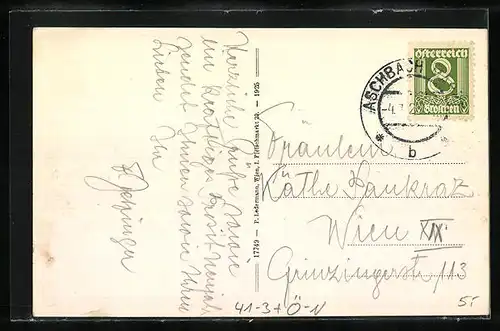 Herzliche Grüße sowie
ein kräftiges Prosit Neujahr
sendet Ihnen sowie Ihren
Lieben
17749 – P. Ledermann, Wien, I. Fleischmarkt 20. – 1925
österreich
8
Groschen
ASCHBACH
* b *
Fräulein
Käthe Pankratz
Wien XIX.
Grinzingerstr, 113
41-3+Ö-N
5f